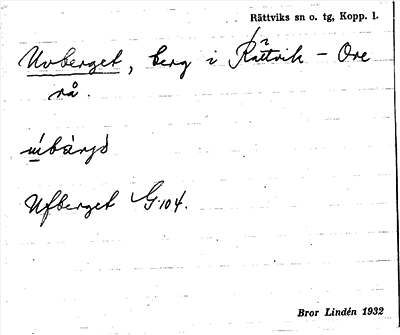 Rättviks sn o. tg, Kopp. l.
Uvberget, berg i Rättvik – Ore
rå.
Ufberget G:104.
Bror Lindén 1932